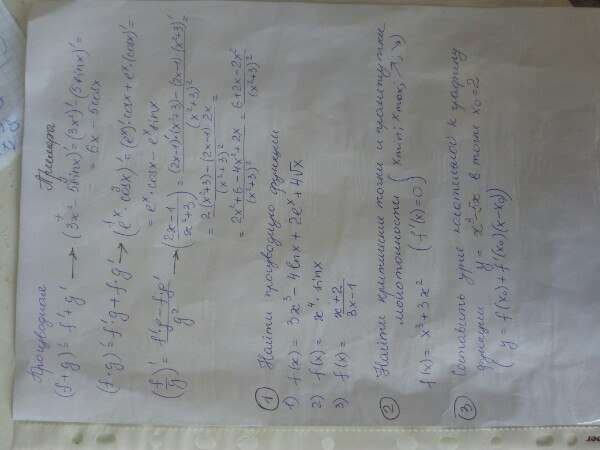 Производная Примеры
(f+g)' = f'+g' → (3x² - 5sinx)' = (3x²)' - (5sinx)' =
= 6x - 5cosx
(f·g)' = f'g + f·g' → (eˣ · cosx)' = (eˣ)'·cosx + eˣ·(cosx)' =
= eˣ·cosx - eˣ sinx
(f/g)' = (f'g - fg')/g² → ((2x-1)/(x²+3))' = ((2x-1)'(x²+3) - (2x-1)·(x²+3)')/(x²+3)² =
= (2(x²+3) - (2x-1)·2x)/(x²+3)² =
= (2x²+6-4x²+2x)/(x²+3)² = (6+2x-2x²)/(x²+3)²
① Найти производную функции
1) f(x) = 3x³ - 4lnx + 2eˣ + 4√x
2) f(x) = x⁴·sinx
3) f(x) = (x+2)/(3x-1)
② Найти критические точки и промежутки
монотонности (xmin; xmax, ↗, ↘)
f(x) = x³+3x² (f'(x)=0)
③ Составить ур-ие касательной к графику
функции y = x³-5x в точке x₀=2
(y = f(x₀) + f'(x₀)(x-x₀))